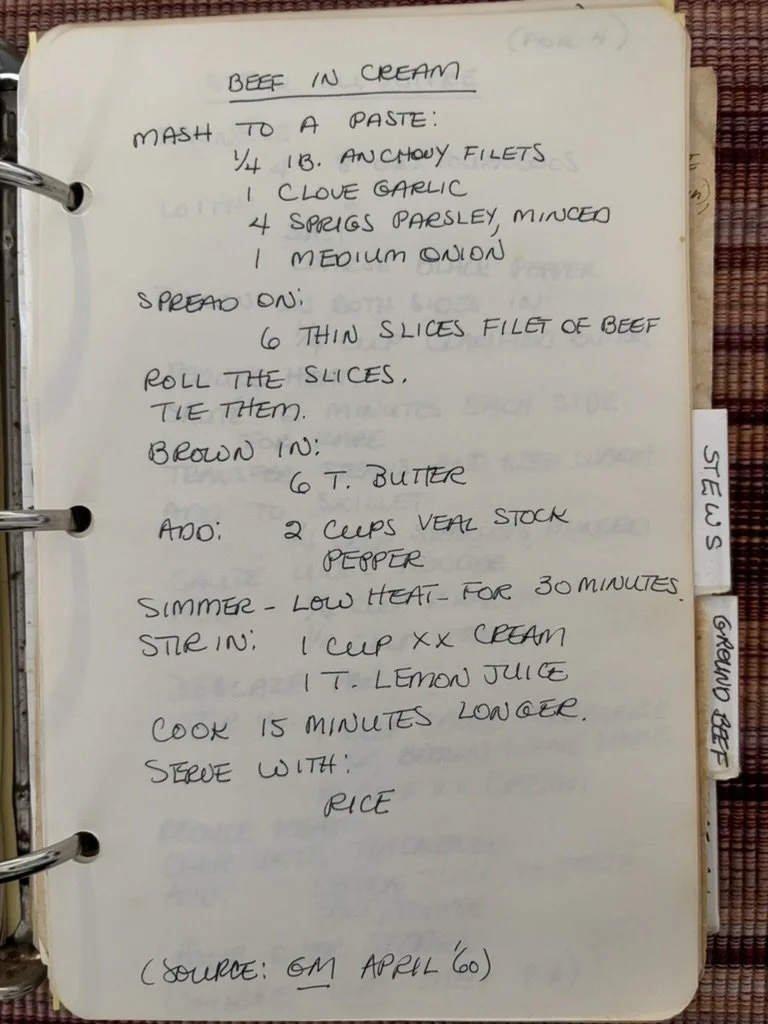 BEEF IN CREAM
MASH TO A PASTE:
1/4 lB. ANCHOVY FILETS
1 CLOVE GARLIC
4 SPRIGS PARSLEY, MINCED
1 MEDIUM ONION
SPREAD ON:
6 THIN SLICES FILET OF BEEF
ROLL THE SLICES.
TIE THEM.
BROWN IN:
6 T. BUTTER
ADD: 2 CUPS VEAL STOCK
PEPPER
SIMMER - LOW HEAT - FOR 30 MINUTES.
STIR IN: 1 CUP XX CREAM
1 T. LEMON JUICE
COOK 15 MINUTES LONGER.
SERVE WITH:
RICE
(SOURCE: GM APRIL '60)
STEWS
GROUND BEEF